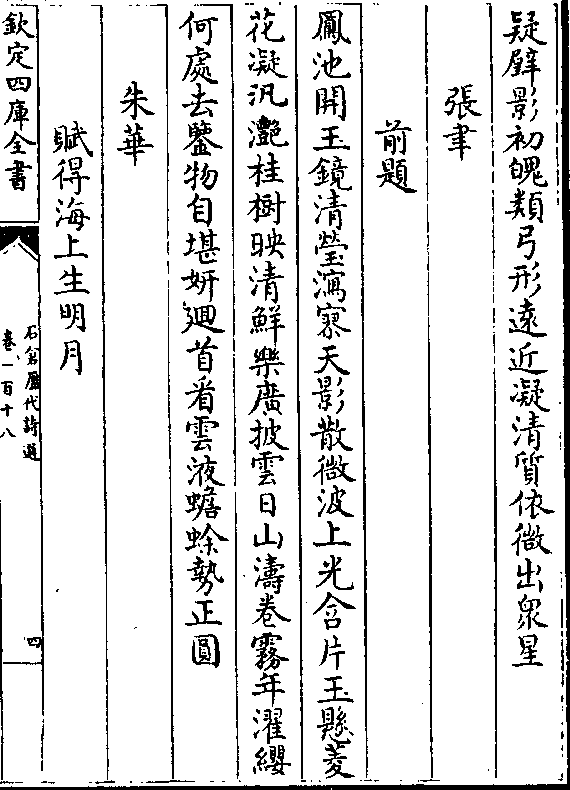 疑璧影初魄類弓形遠近凝清質依微出衆星
張聿
前題
鳳池開玉鏡清瑩瀉寥天影散微波上光含片玉懸菱
花凝汎灔桂樹映清鮮樂廣披雲日山濤卷霧年濯纓
何處去鑒物自堪妍廻首看雲液蟾蜍勢正圓
朱華
賦得海上生明月
欽定四庫全書
石倉歷代詩選
卷一百十八
四